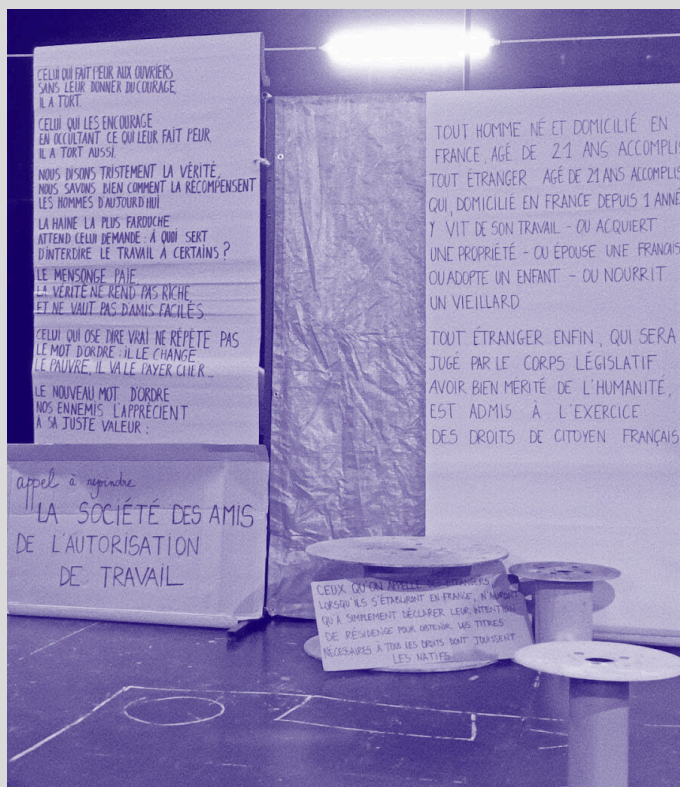 CELUI QUI FAIT PEUR AUX OUVRIERS
SANS LEUR DONNER DU COURAGE,
IL A TORT.
CELUI QUI LES ENCOURAGE
EN OCCULTANT CE QUI LEUR FAIT PEUR,
IL A TORT AUSSI.
NOUS DISONS TRISTEMENT LA VÉRITÉ,
NOUS SAVONS BIEN COMMENT LA RÉCOMPENSENT
LES HOMMES D'AUJOURD'HUI
LA HAINE LA PLUS FAROUCHE
ATTEND CELUI DEMANDE : À QUOI SERT
D'INTERDIRE LE TRAVAIL À CERTAINS ?
LE MENSONGE PAIE,
LA VÉRITÉ NE REND PAS RICHE,
ET NE VAUT PAS D'AMIS FACILES.
CELUI QUI OSE DIRE VRAI NE RÉPÈTE PAS
LE MOT D'ORDRE : IL LE CHANGE.
LE PAUVRE, IL VA LE PAYER CHER...
LE NOUVEAU MOT D'ORDRE
NOS ENNEMIS L'APPRÉCIENT
À SA JUSTE VALEUR :
appel à rejoindre
LA SOCIÉTÉ DES AMIS
DE L'AUTORISATION
DE TRAVAIL
TOUT HOMME NÉ ET DOMICILIÉ EN
FRANCE, AGÉ DE 21 ANS ACCOMPLIS
TOUT ÉTRANGER AGÉ DE 21 ANS ACCOMPLIS
QUI, DOMICILIÉ EN FRANCE DEPUIS 1 ANNÉE
Y VIT DE SON TRAVAIL - OU ACQUIERT
UNE PROPRIÉTÉ - OU ÉPOUSE UNE FRANÇAIS
OU ADOPTE UN ENFANT - OU NOURRIT
UN VIEILLARD
TOUT ÉTRANGER ENFIN, QUI SERA
JUGÉ PAR LE CORPS LÉGISLATIF
AVOIR BIEN MÉRITÉ DE L'HUMANITÉ,
EST ADMIS À L'EXERCICE
DES DROITS DE CITOYEN FRANÇAIS
CEUX QU'ON APPELLE DES ÉTRANGERS,
LORSQU'ILS S'ÉTABLIRONT EN FRANCE, N'AURONT
QU'À SIMPLEMENT DÉCLARER LEUR INTENTION
DE RÉSIDENCE POUR OBTENIR LES TITRES
NÉCESSAIRES À TOUS LES DROITS DONT JOUISSENT
LES NATIFS